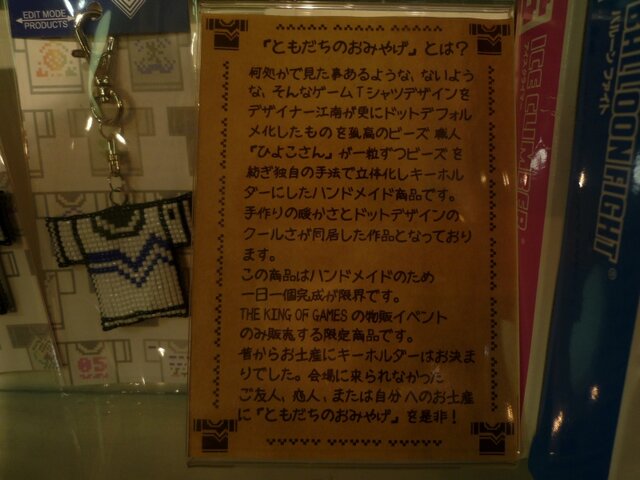 EDIT MODE
PRODUCTS
『ともだちのおみやげ』とは?
何処かで見た事あるような、ないよう
な、そんなゲームTシャツデザインを
デザイナー江南が更にドットデフォル
メ化したものを孤高のビーズ職人
『ひよこさん』が一粒ずつビーズを
紡ぎ独自の手法で立体化しキーホル
ダーにしたハンドメイド商品です。
手作りの暖かさとドットデザインの
クールさが同居した作品となっており
ます。
この商品はハンドメイドのため
一日一個完成が限界です。
THE KING OF GAMES の物販イベント
のみ販売する限定商品です。
昔からお土産にキーホルダーはお決ま
りでした。会場に来られなかった
ご友人、恋人、または自分へのお土産
に『ともだちのおみやげ』を是非!
ICE CLIMBER
アイスクライマー
BALLOON FIGHT
バルーンファイト